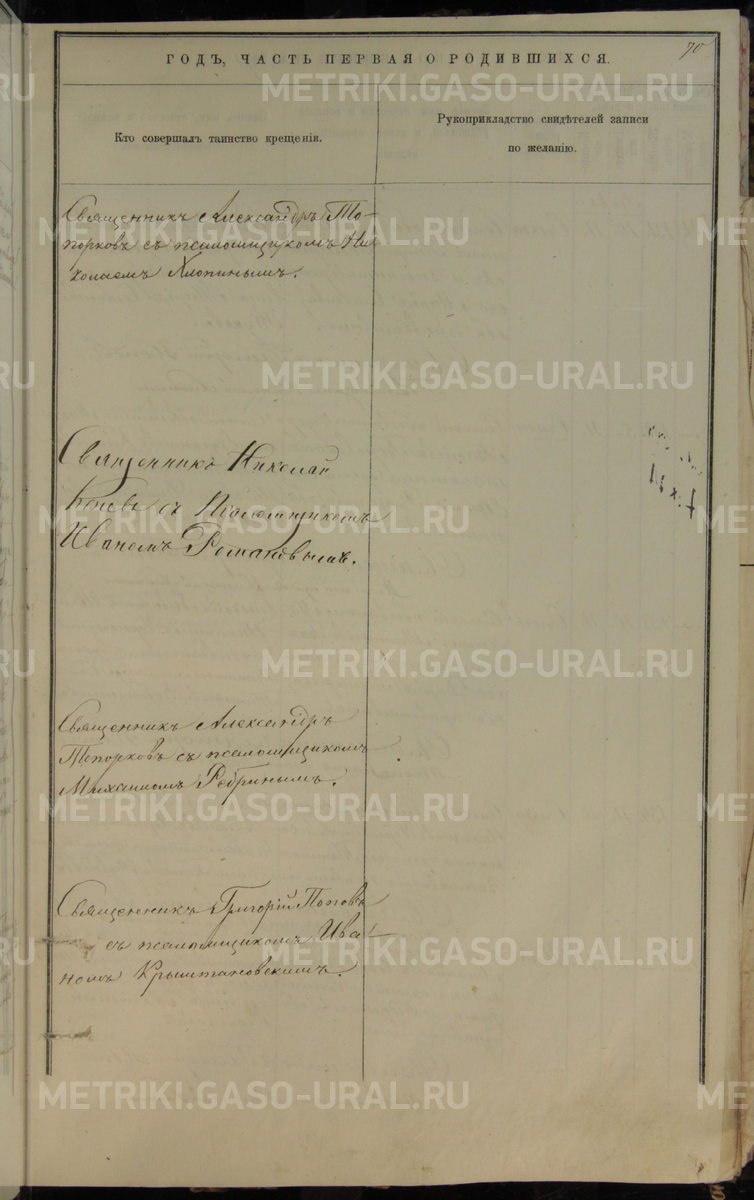 70
ГОДЪ, ЧАСТЬ ПЕРВАЯ О РОДИВШИХСЯ.
Кто совершалъ таинство крещенія.
Рукоприкладство свидѣтелей записи
по желанію.
Священникъ Александръ То-
порковъ съ псаломщикомъ Ни
колаемъ Хлопинымъ.
Священникъ Николай
съ Псаломщикомъ
Иваномъ Романовымъ.
Священникъ Александръ
Топорковъ съ псаломщикомъ
Михаиломъ Ребринымъ.
Священникъ Григорій Поповъ
съ псаломщикомъ Ива-
номъ Крыштановскимъ.
METRIKI.GASO-URAL.RU